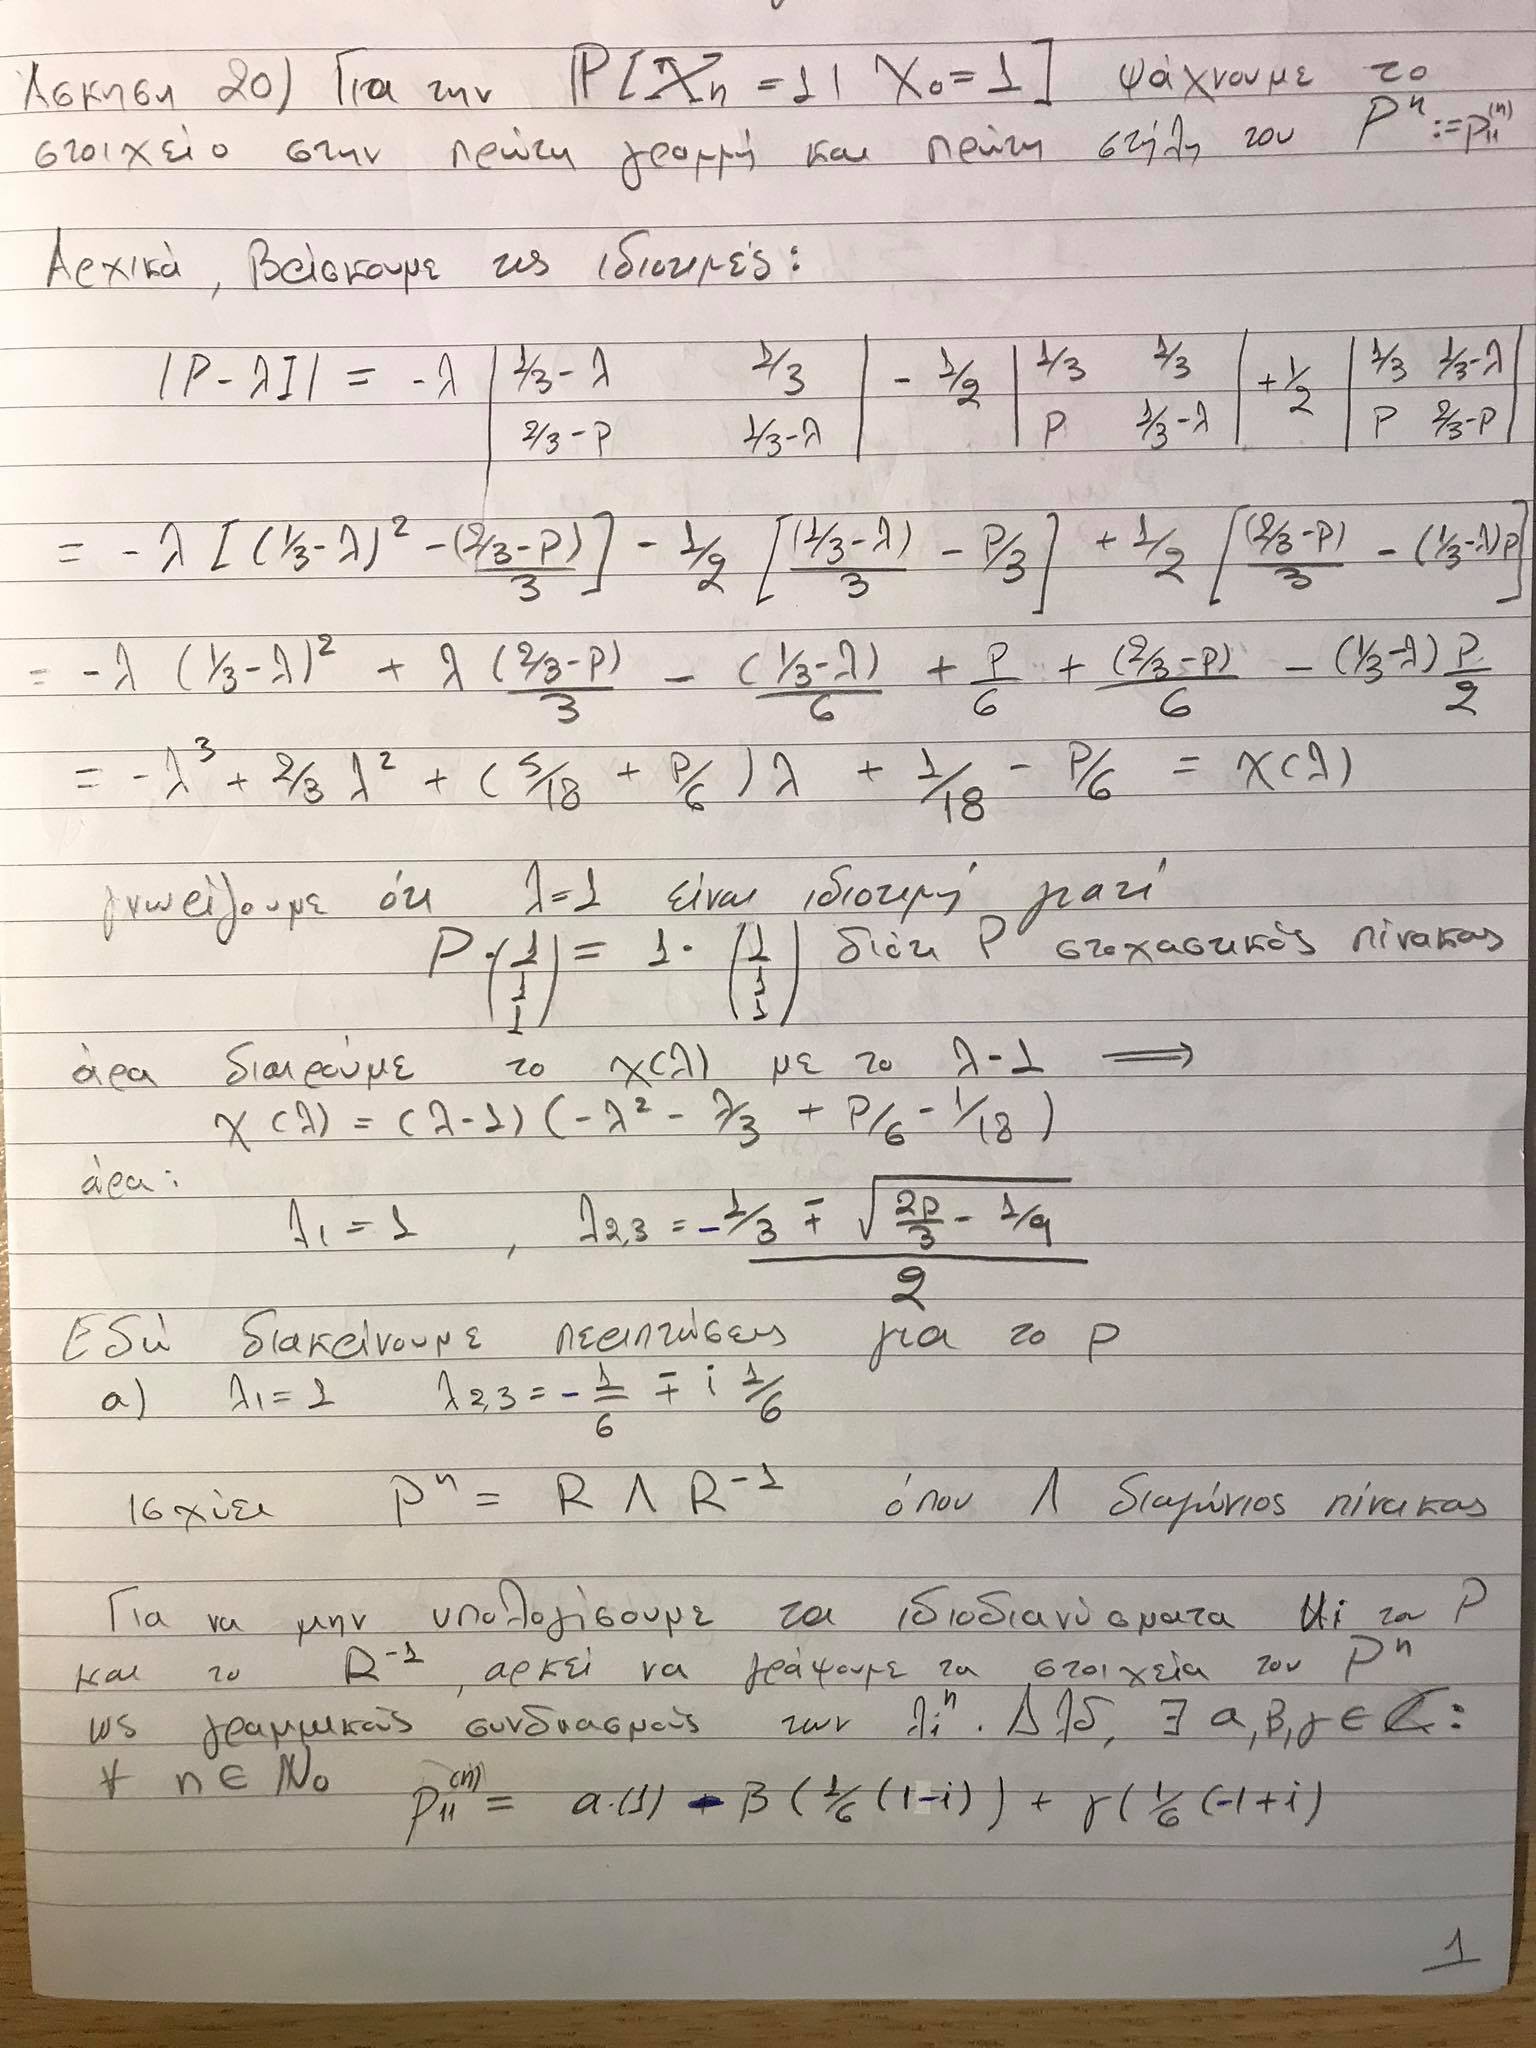 Άσκηση 20) Για την P[Xn = 1 | X0 = 1] ψάχνουμε το
στοιχείο στην πρώτη γραμμή και πρώτη στήλη του P^n := p11^(n)
Αρχικά, βρίσκουμε τις ιδιοτιμές:
|P - λI| = -λ | 1/3-λ 1/3 | - 1/2 | 1/3 1/3 | + 1/2 | 1/3 1/3-λ |
| 2/3-p 1/3-λ | | p 1/3-λ | | p 2/3-p |
= -λ [(1/3-λ)^2 - (2/3-p)/3] - 1/2 [(1/3-λ)/3 - p/3] + 1/2 [(2/3-p)/3 - (1/3-λ)p]
= -λ (1/3-λ)^2 + λ (2/3-p)/3 - (1/3-λ)/6 + p/6 + (2/3-p)/6 - (1/3-λ) p/2
= -λ^3 + 2/3 λ^2 + (5/18 + p/6) λ + 1/18 - p/6 = χ(λ)
γνωρίζουμε ότι λ=1 είναι ιδιοτιμή γιατί
P · (1 1 1) = 1 · (1 1 1) διότι P στοχαστικός πίνακας
άρα διαιρούμε το χ(λ) με το λ-1 ⟹
χ(λ) = (λ-1) (-λ^2 - λ/3 + p/6 - 1/18)
άρα:
λ1 = 1 , λ2,3 = (-1/3 ∓ √(2p/3 - 1/9))/2
Εδώ διακρίνουμε περιπτώσεις για το p
α) λ1 = 1 λ2,3 = -1/6 ∓ i 1/6
ισχύει P^n = R Λ R^-1 όπου Λ διαγώνιος πίνακας
Για να μην υπολογίσουμε τα ιδιοδιανύσματα ui του P
και το R^-1, αρκεί να γράψουμε τα στοιχεία του P^n
ως γραμμικούς συνδυασμούς των λi^n. Δλδ, ∃ α,β,γ ∈ C:
∀ n ∈ N0 p11^(n) = α·(1) + β (1/6 (1-i)) + γ (1/6 (-1+i)
1